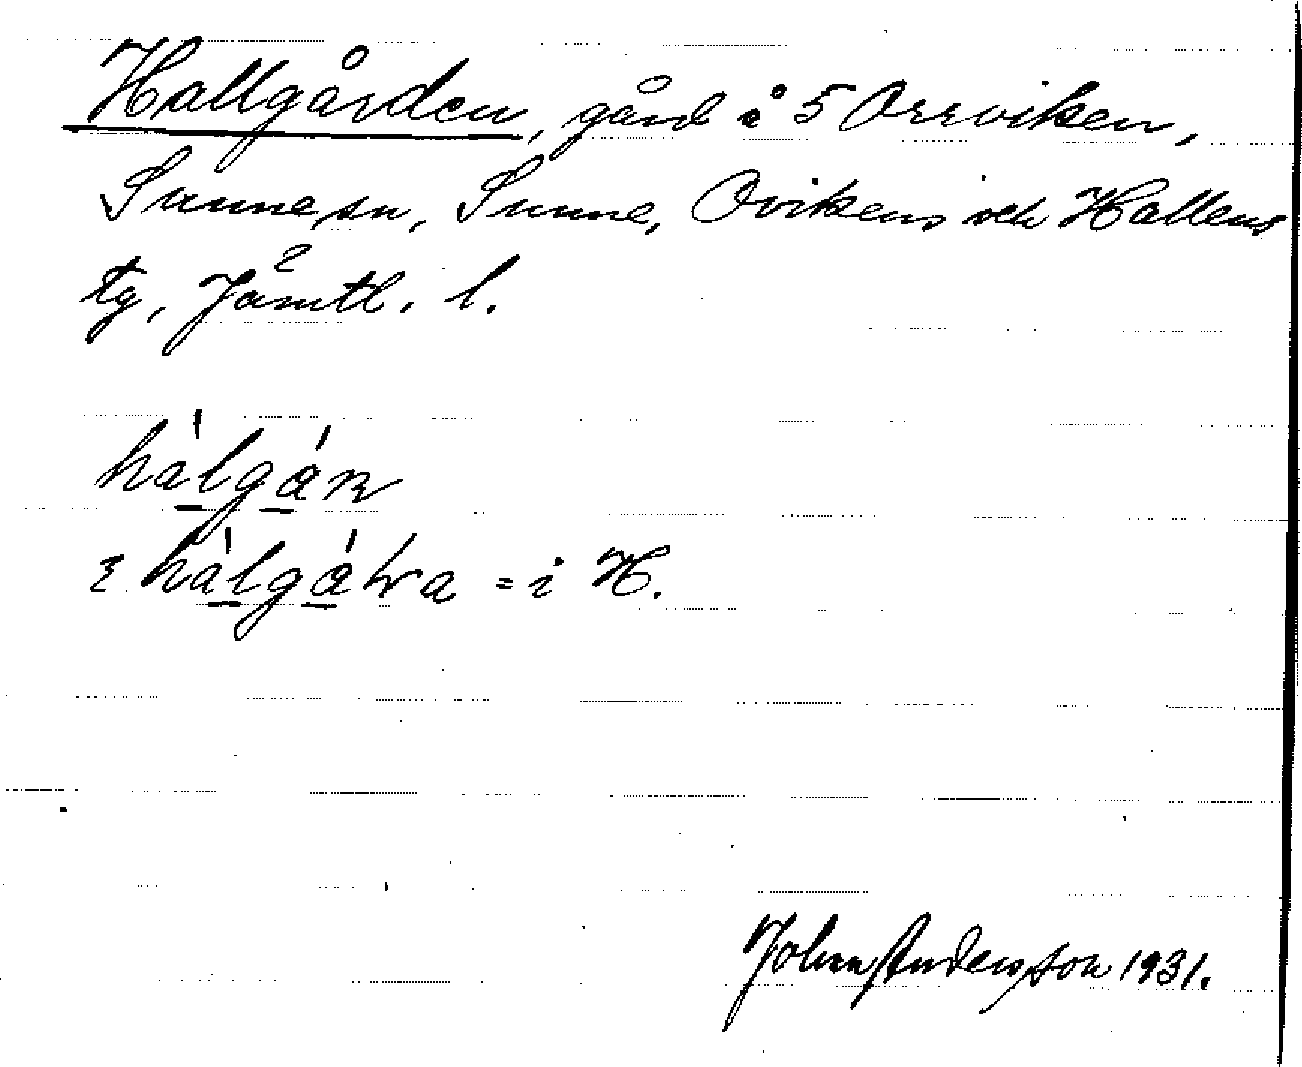 Hallgården, gård å 5 Orrviken,
Sunne sn, Sunne, Ovikens och Hallens
tg, Jämtl. l.
hàlgán
ɩ hàlgáʈɽa = i H.
John Andersson 1931.